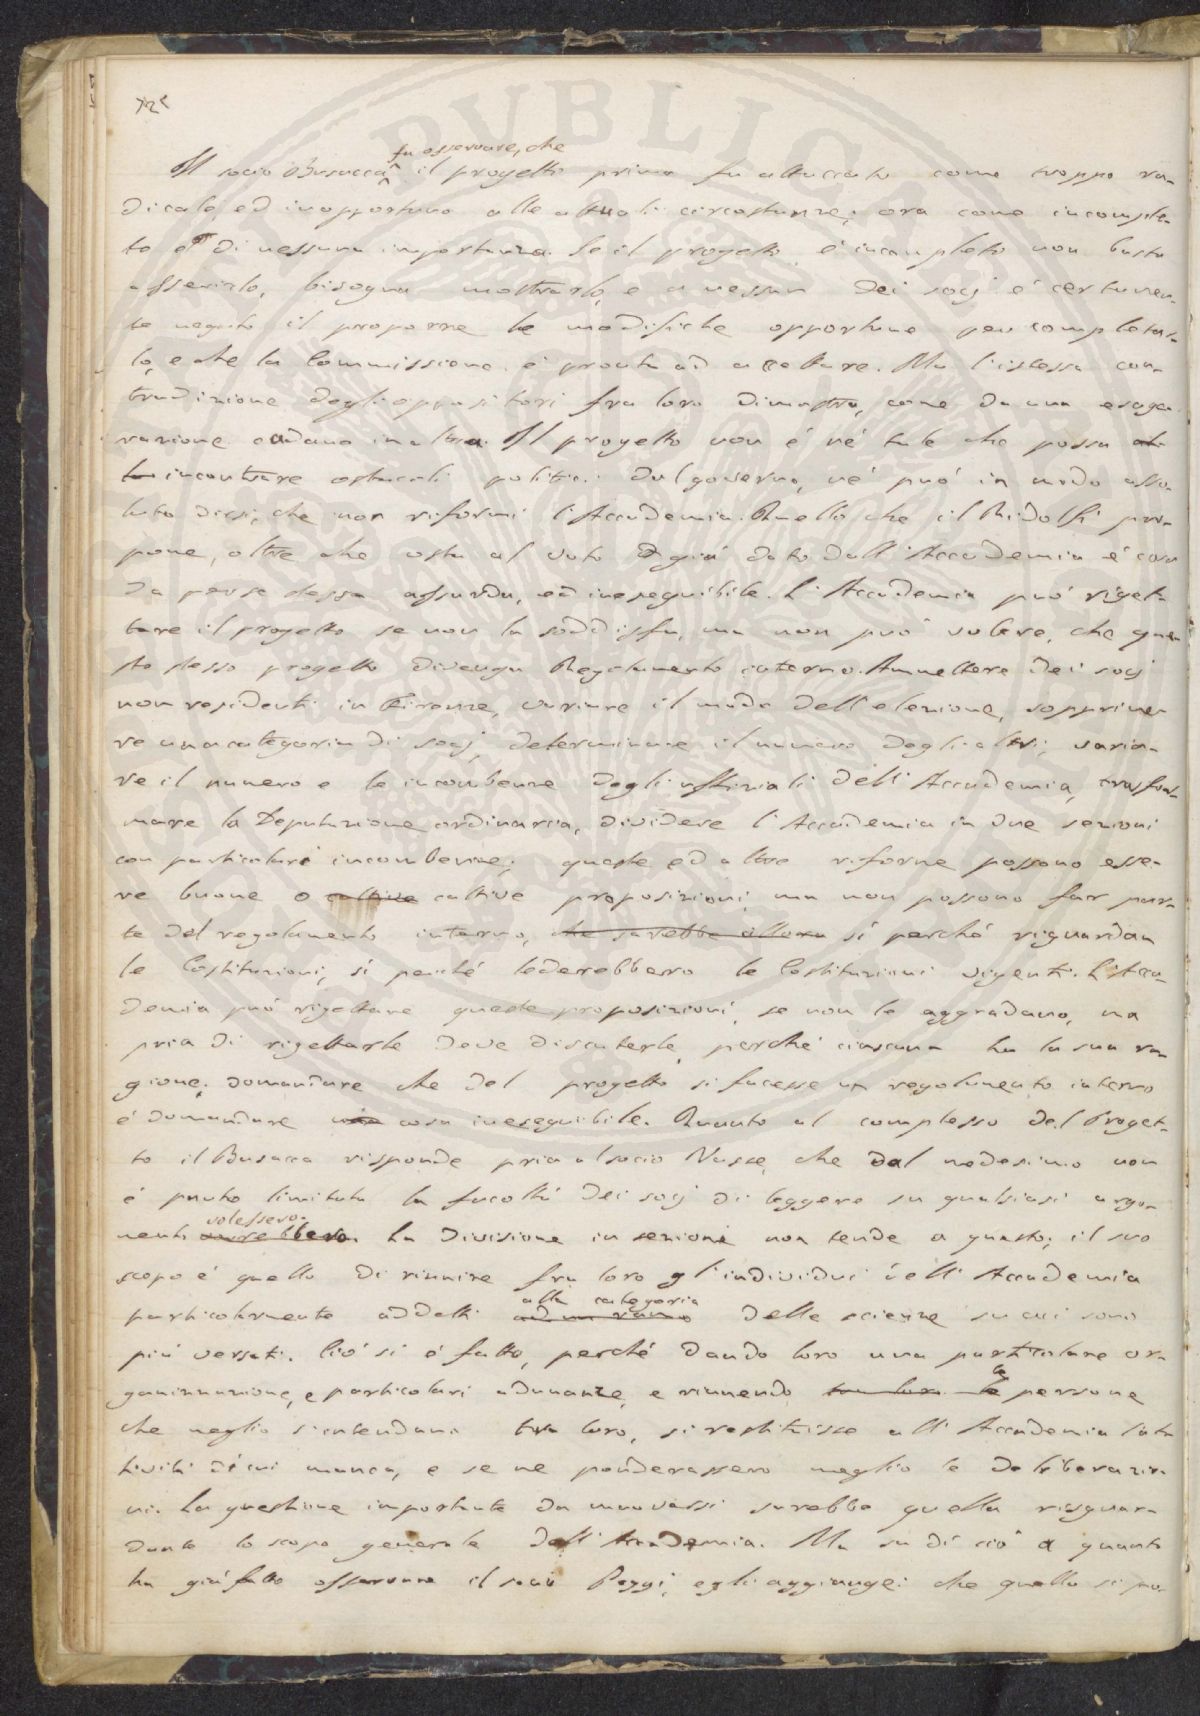 fu osservare, che
Il socio Busacca il progetto prima fu attaccato come troppo ra-
dicale, ed inopportuno alle attuali circostanze; ora come incomple-
to e di nessuna importanza. Se il progetto è incompleto non basta
asserirlo, bisogna mostrarlo, e a nessun dei socj è certamen-
te negato il proporre le modifiche opportune per completar-
lo, e che la Commissione è pronta ad accettare. Ma l'istessa con-
tradizione degli oppositori fra loro dimostra, come da una esage-
razione cadano in altra. Il progetto non è nè tale che possa
incontrare ostacoli politici dal governo, nè può in modo asso-
luto dirsi, che non riformi l'Accademia. Quello che il Ridolfi pro-
pone, oltre che osta al voto già dato dall'Accademia è cosa
da per se stessa assurda, ed ineseguibile. L'Accademia può riget-
tare il progetto se non la soddisfa, ma non può volere, che que-
sto stesso progetto divenga Regolamento interno. Ammettere dei socj
non residenti in Firenze, variare il modo dell'elezione, sopprime-
re una categoria di socj, determinare il numero degli altri, varia-
re il numero e le incombenze degli uffiziali dell'Accademia, trasfor-
mare la Deputazione ordinaria, dividere l'Accademia in due sezioni
con particolari incombenze; queste ed altre riforme possono esse-
re buone o cattive cattive proposizioni, ma non possono far par-
te del regolamento interno, che sarebbe allora sì perché riguardan
le Costituzioni, sì perché lederebbero le Costituzioni vigenti. L'Acca-
demia può rigettare queste proposizioni, se non le aggradano, ma
pria di rigettarle deve discuterle, perché ciascuna ha la sua ra-
gione; domandare che del progetto si facesse un regolamento interno
è domandare una cosa ineseguibile. Quanto al complesso del Proget-
to il Busacca risponde pria al socio Nasse, che dal medesimo non
è punto limitata la facoltà dei socj di leggere su qualsiasi argo-
volessero.
mento. La divisione in sezioni non tende a questo; il suo
scopo è quello di riunire fra loro gl'individui dell'Accademia
alla categoria
particolarmente addetti ad un ramo delle scienze su cui sono
più versati. Ciò si è fatto, perché dando loro una particolare or-
ganizzazione, e particolari adunanze, e riunendo le persone
che meglio s'intendano tra loro, si restituisce all'Accademia l'at-
tività di cui manca, e se ne ponderassero meglio le deliberazio-
ni. La questione importante da muoversi sarebbe quella risguar-
dante lo scopo generale dell'Accademia. Ma su di ciò a quanto
ha già fatto osservare il socio Poggi, egli aggiunge: che quello si pro-